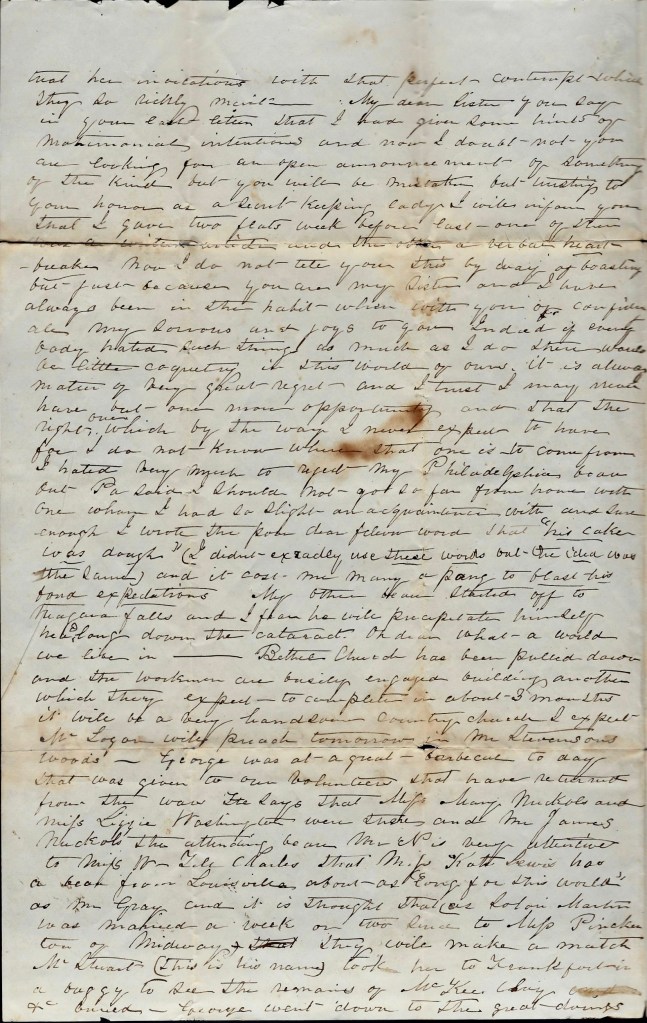 treat her invitations with that perfect contempt which
they so richly merit — My dear Sister you say
in your last letter that I had given some hints of
matrimonial intentions and now I doubt not you
are looking for an open announcement of something
of the kind but you will be mistaken but trusting to
your honor as a secret keeping lady I will inform you
that I gave two flats week before last — one of them
was a written article and the other a verbal heart
-breaker Now I do not tell you this by way of boasting
but just because you are my sister and I have
always been in the habit when with you of confiding
all my sorrows and joys to you Indeed if every
body hated such things as much as I do there would
be little coquetry in this world of ours. it is always
matter of very great regret — and I trust I may never
have but one more opportunity and that the
right one, which by the way I never expect to have
for I do not know where that one is to come from
I hated very much to reject my Philadelphia beau
but Pa said I should not go so far from home with
one whom I had so slight an acquaintance with and sure
enough I wrote the poor dear fellow word that "his cake
was dough" (I didnt exactly use these words but the idea was
the same) and it cost me many a pang to blast his
fond expectations My other beau started off to
Niagara falls and I fear he will precipitate himself
headlong down the cataract Oh dear what a world
we live in —— Bethel Church has been pulled down
and the workmen are busily engaged building another
which they expect to complete in about 3 months
it will be a very handsome country church I expect
Mr Logan will preach tomorrow in Mr Stevensons
woods — George was at a great barbecue to day
that was given to our Volunteers that have returned
from the war He says that Miss Mary Nuckols and
Miss Lizzie Washington were there and Mr James
Nuckols the attending beau Mr N is very attentive
to Miss W Tell Charles that Miss Kate Lewis has
a beau from Louisville about as "long for this world"
as Mr Gray and it is thought that as Solon Martin
was married a week or two since to Miss Pincker
ton of Midway they will make a match
Mr Stuart (this is his name) took her to Frankfort in
a buggy to see the remains of McKee Clay
&c buried — George went down to the great doings